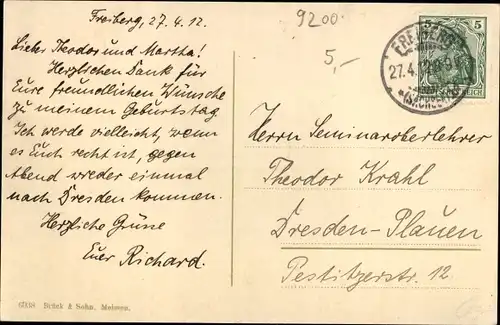 Freiberg, 27.4.12.
Lieber Theodor und Martha!
Herzlichen Dank für
Eure freundlichen Wünsche
zu meinem Geburtstag.
Ich werde vielleicht, wenn
es Euch recht ist, gegen
Abend wieder einmal
nach Dresden kommen.
Herzliche Grüsse
Euer Richard.
Brück & Sohn, Meissen.
9200
5,-
FREIBERG
27.4.12
(SACHSEN)
5
5
REICH
Herrn Seminaroberlehrer
Theodor Krahl
Dresden-Plauen
Pestitzerstr. 12.